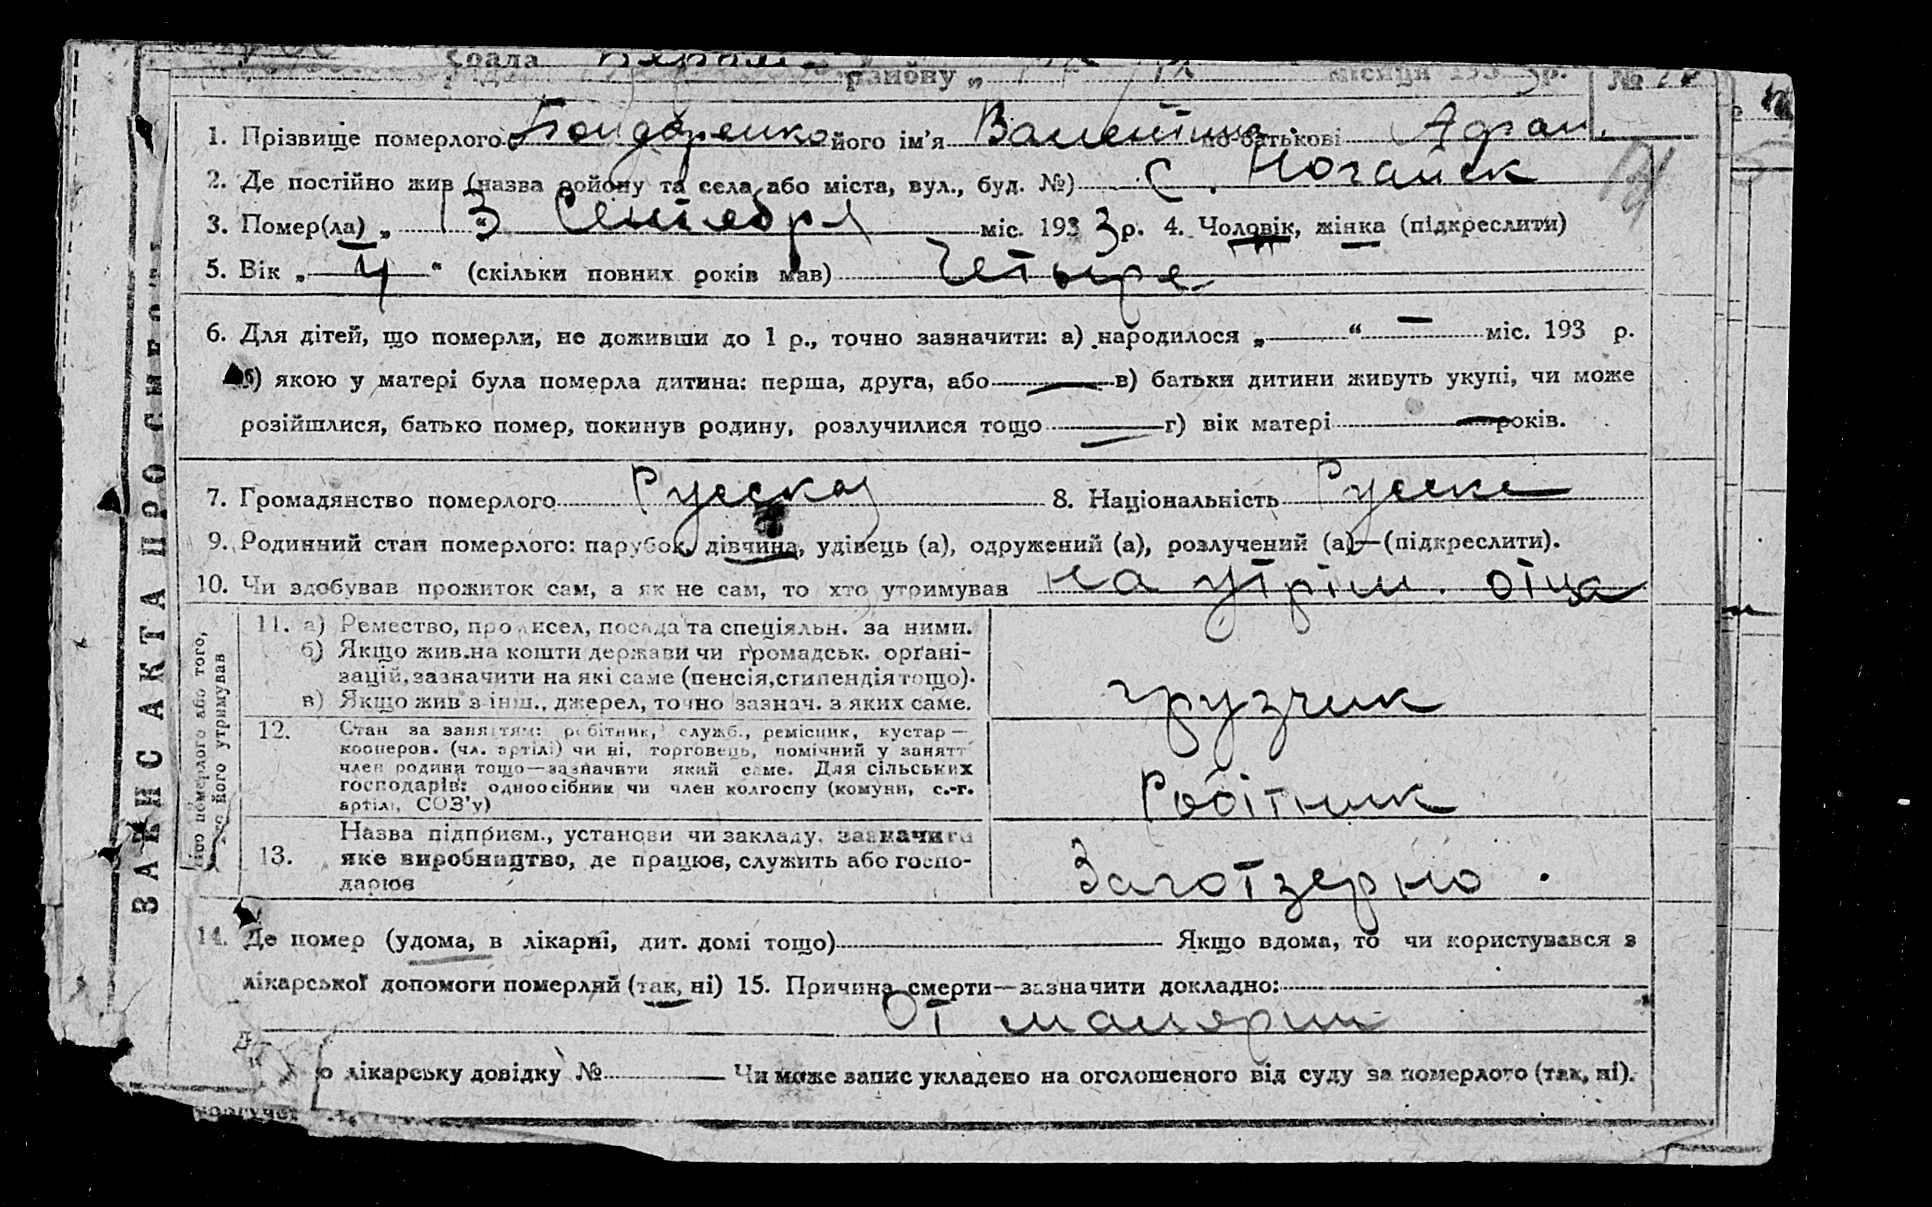 рада
району „ IX місяця 193 3 р. №
1. Прізвище померлого Бондаренко його ім'я Валентина по-батькові Афан.
2. Де постійно жив (назва району та села або міста, вул., буд. №) с. Ногайск
3. Помер(ла) „ 13 " Сентября міс. 193 3 р. 4. Чоловік, жінка (підкреслити)
5. Вік „ 4 " (скільки повних років мав) Четыре
6. Для дітей, що померли, не доживши до 1 р., точно зазначити: а) народилося „ — " — міс. 193 р.
б) якою у матері була померла дитина: перша, друга, або — в) батьки дитини живуть укупі, чи може
розійшлися, батько помер, покинув родину, розлучилися тощо — г) вік матері — років.
7. Громадянство померлого Русская 8. Національність Русске
9. Родинний стан померлого: парубок, дівчина, удівець (а), одружений (а), розлучений (а)—(підкреслити).
10. Чи здобував прожиток сам, а як не сам, то хто утримував на утрім. отца
11. а) Ремество, промисел, посада та спеціяльн. за ними.
б) Якщо жив на кошти держави чи громадськ. орґані-
зацій, зазначити на які саме (пенсія, стипендія тощо).
в) Якщо жив з інш., джерел, точно зазнач. з яких саме.
грузчик
12. Стан за заняттям: робітник, служб., ремісник, кустар—
кооперов. (чл. артілі) чи ні, торговець, помічний у занятт
член родини тощо—зазначити який саме. Для сільських
господарів: одноосібник чи член колгоспу (комуни, с.-г.
артілі, СОЗ'у)
Робітник
13. Назва підприєм., установи чи закладу, зазначити
яке виробництво, де працює, служить або госпо-
дарює
Заготзерно.
14. Де помер (удома, в лікарні, дит. домі тощо) — Якщо вдома, то чи користувався з
лікарської допомоги померлий (так, ні) 15. Причина смерти—зазначити докладно:
От малярии
о лікарську довідку № — Чи може запис укладено на оголошеного від суду за померлого (так, ні).
ЗАПИС АКТА ПРО СМЕРТЬ
його утримував